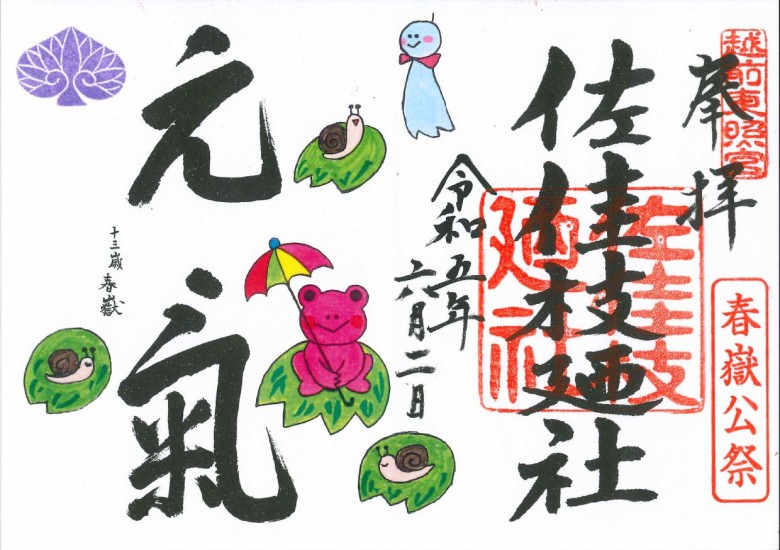 越前東照宮
奉拝
春嶽公祭
佐佳枝廼社
佐佳枝廼社
令和五年
六月二日
元氣
十三歳 春嶽